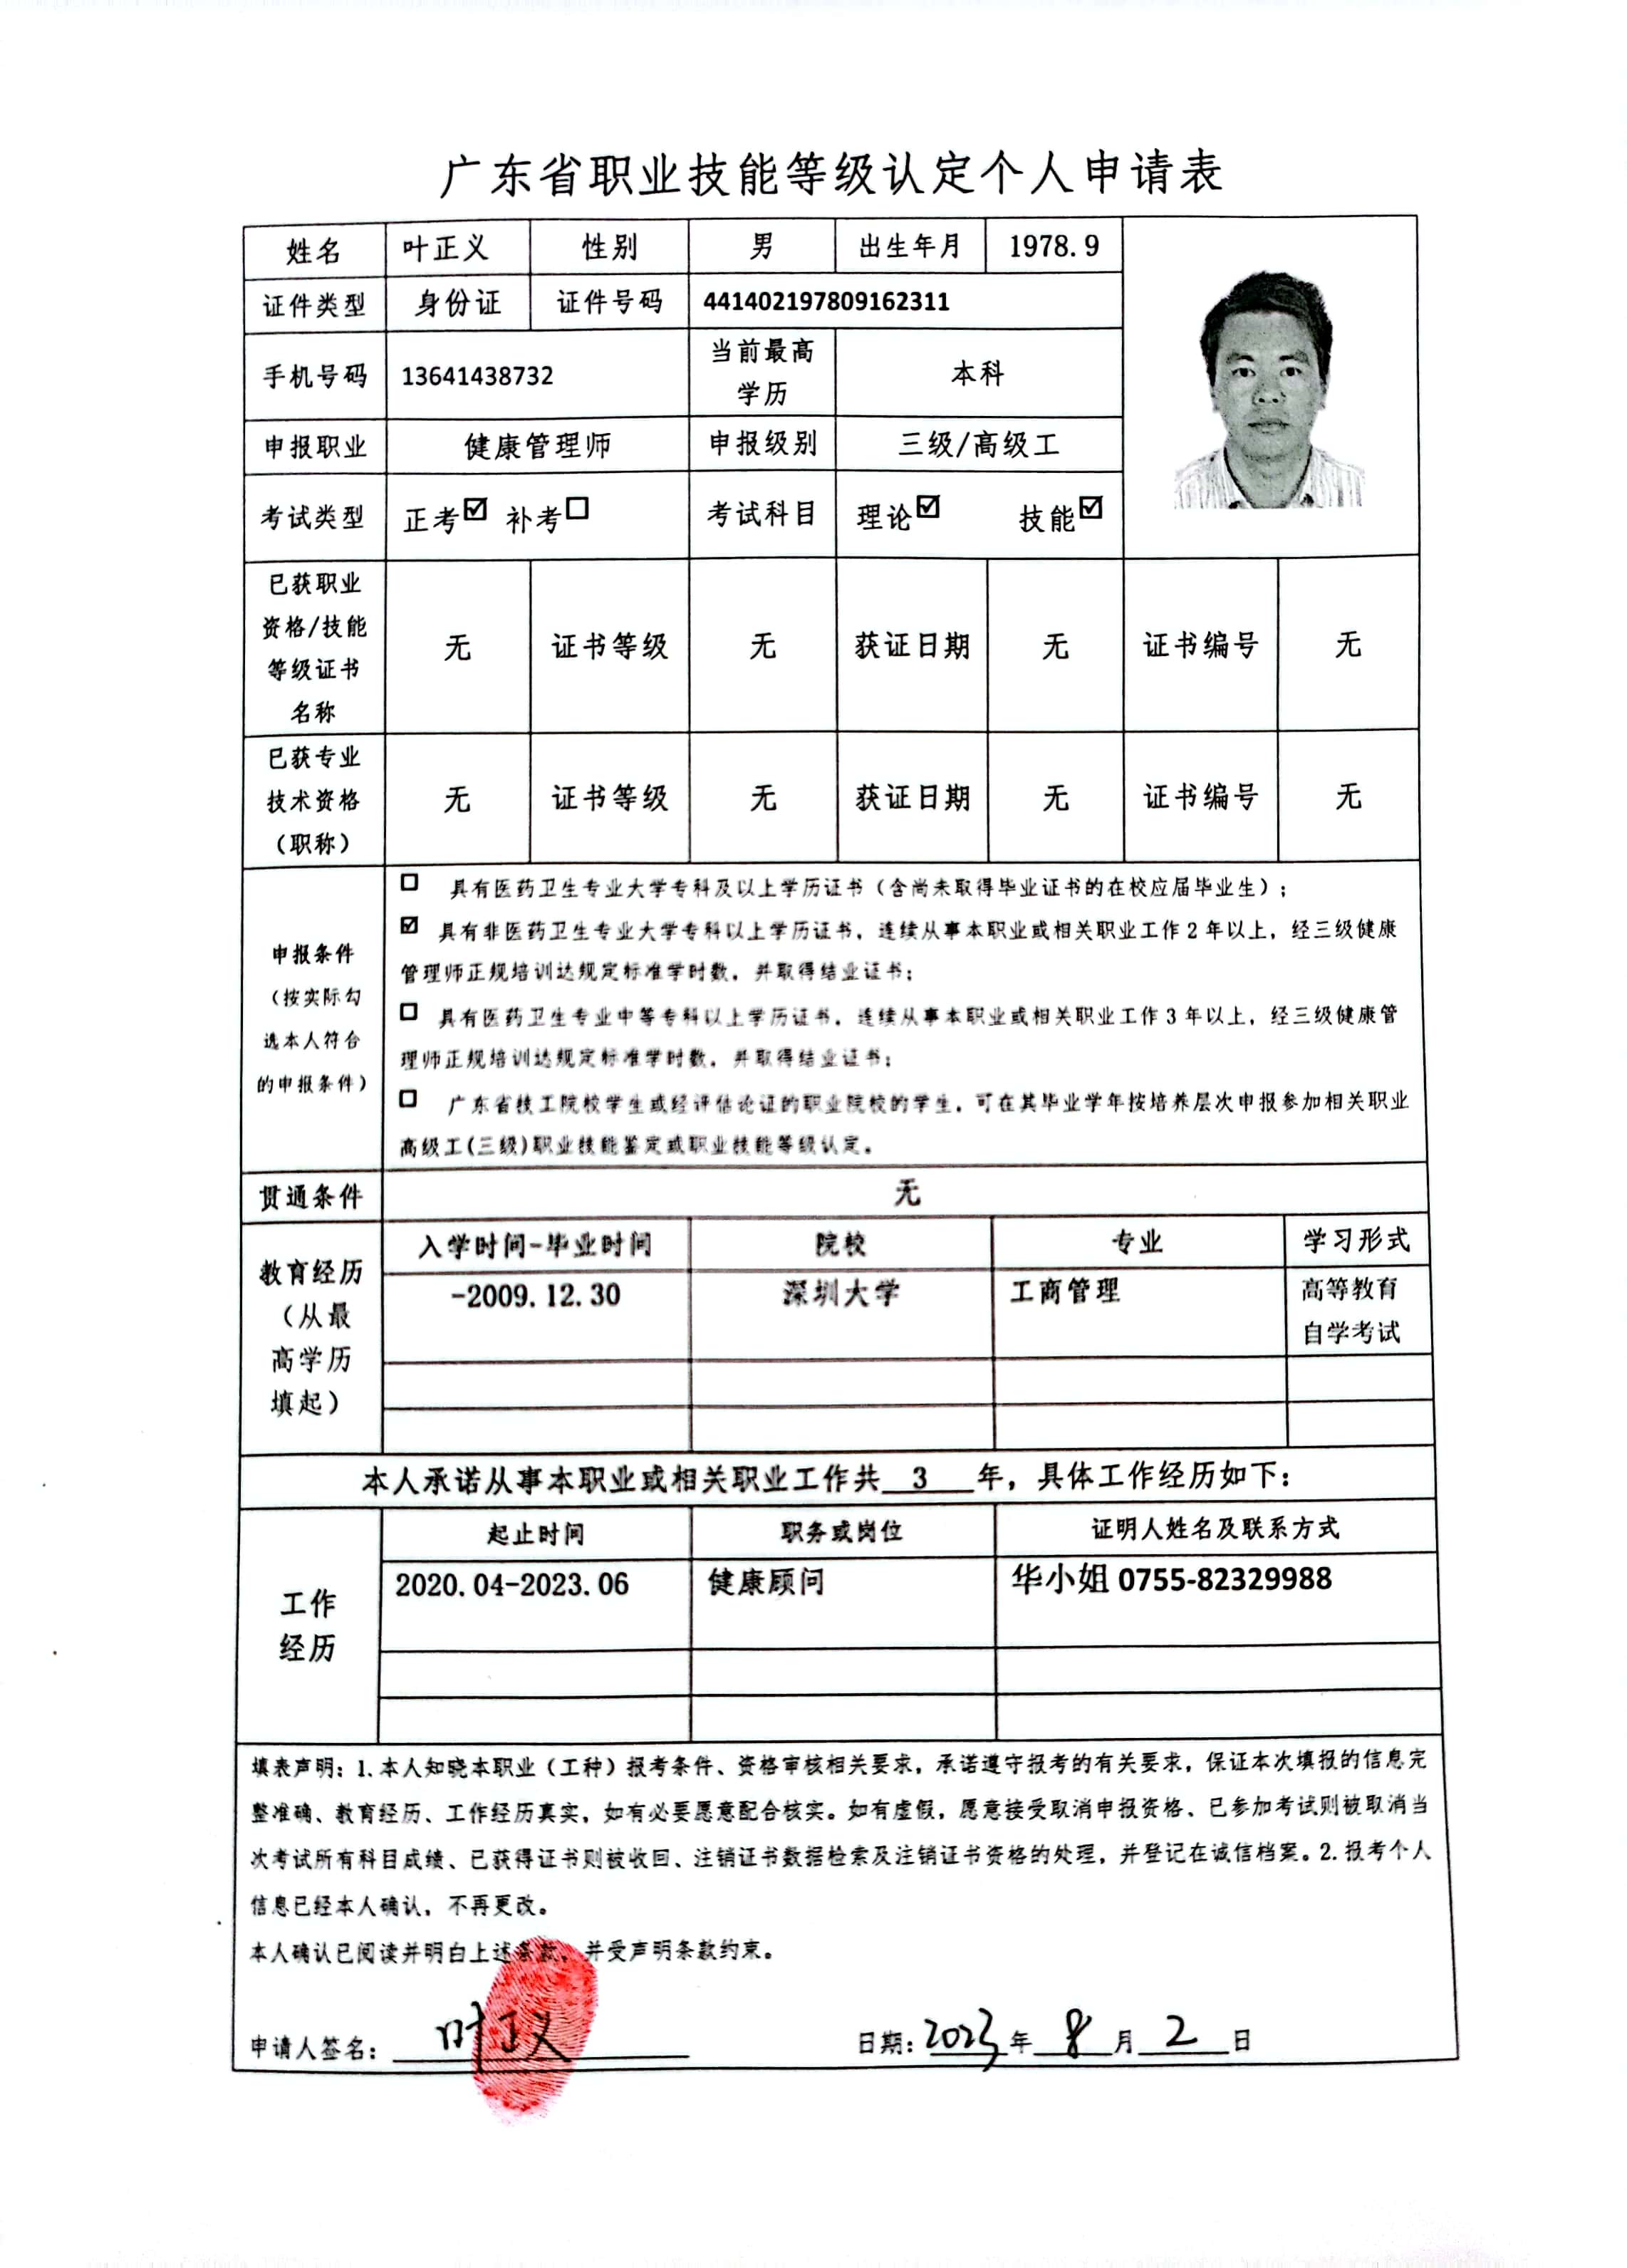 广东省职业技能等级认定个人申请表
姓名 叶正义 性别 男 出生年月 1978.9
证件类型 身份证 证件号码 441402197809162311
手机号码 13641438732 当前最高
学历 本科
申报职业 健康管理师 申报级别 三级/高级工
考试类型 正考☑ 补考☐ 考试科目 理论☑ 技能☑
已获职业
资格/技能
等级证书
名称 无 证书等级 无 获证日期 无 证书编号 无
已获专业
技术资格
（职称） 无 证书等级 无 获证日期 无 证书编号 无
申报条件
（按实际勾
选本人符合
的申报条件）
☐ 具有医药卫生专业大学专科及以上学历证书（含尚未取得毕业证书的在校应届毕业生）；
☑ 具有非医药卫生专业大学专科以上学历证书，连续从事本职业或相关职业工作2年以上，经三级健康
管理师正规培训达规定标准学时数，并取得结业证书；
☐ 具有医药卫生专业中等专科以上学历证书，连续从事本职业或相关职业工作3年以上，经三级健康管
理师正规培训达规定标准学时数，并取得结业证书；
☐ 广东省技工院校学生或经评估论证的职业院校的学生，可在其毕业学年按培养层次申报参加相关职业
高级工(三级)职业技能鉴定或职业技能等级认定。
贯通条件 无
教育经历
（从最
高学历
填起）
入学时间-毕业时间 院校 专业 学习形式
-2009.12.30 深圳大学 工商管理 高等教育
自学考试
本人承诺从事本职业或相关职业工作共 3 年，具体工作经历如下：
工作
经历
起止时间 职务或岗位 证明人姓名及联系方式
2020.04-2023.06 健康顾问 华小姐 0755-82329988
填表声明：1.本人知晓本职业（工种）报考条件、资格审核相关要求，承诺遵守报考的有关要求，保证本次填报的信息完
整准确、教育经历、工作经历真实，如有必要愿意配合核实。如有虚假，愿意接受取消申报资格、已参加考试则被取消当
次考试所有科目成绩、已获得证书则被收回、注销证书数据检索及注销证书资格的处理，并登记在诚信档案。2.报考个人
信息已经本人确认，不再更改。
本人确认已阅读并明白上述条款，并受声明条款约束。
申请人签名： 叶正义 日期：2023年 8 月 2 日